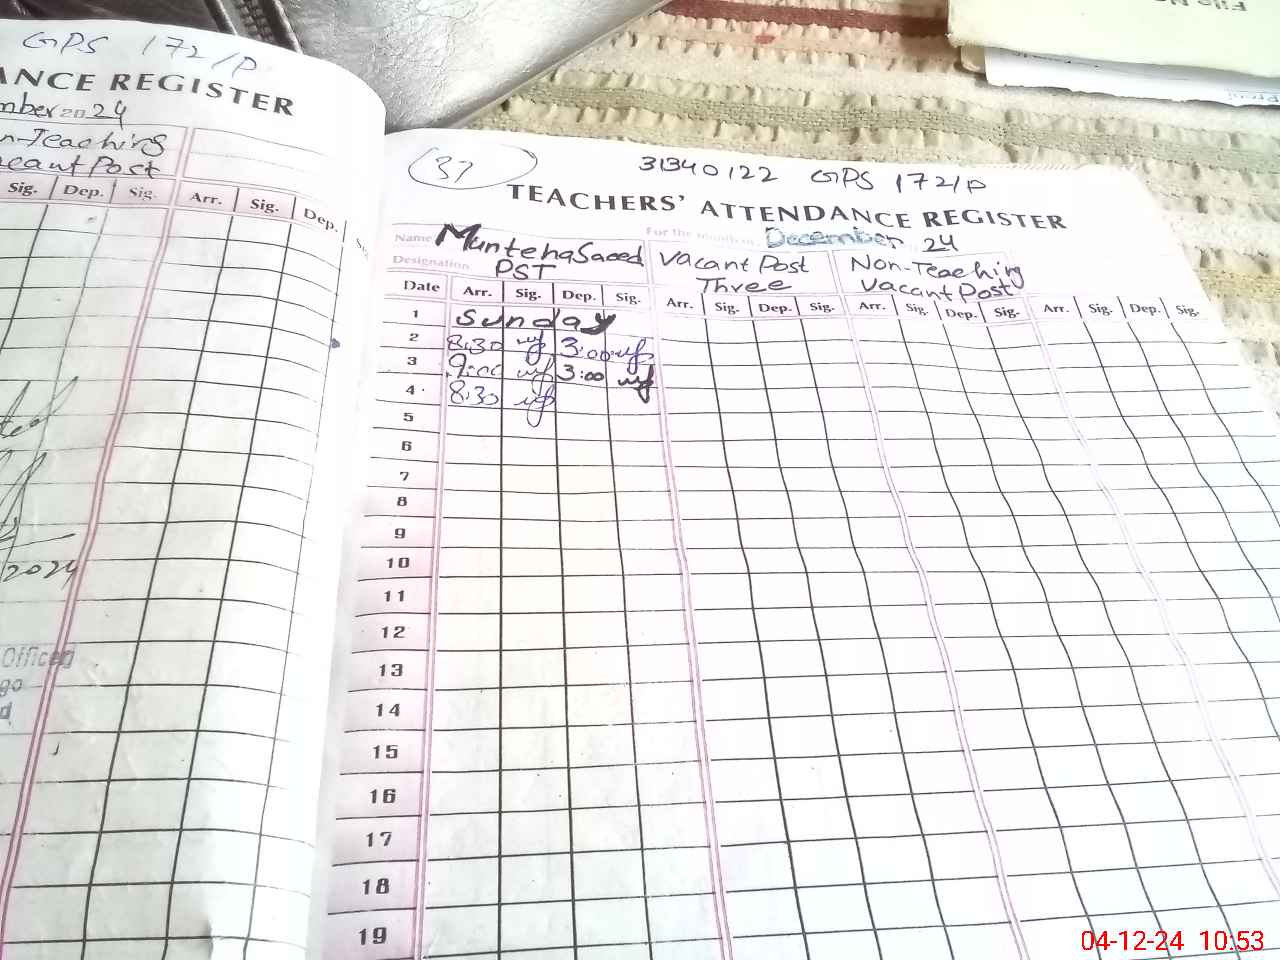 GPS 172/P
ANCE REGISTER
mber 2024
n-Teaching
acant Post
Sig. Dep. Sig. Arr. Sig. Dep.
2024
Officer
go
d
37
31340122 GPS 172/P
TEACHERS' ATTENDANCE REGISTER
For the month of December 24
Name Munteha Saeed Vacant Post Non-Teaching
Designation PST Three Vacant Post
Date Arr. Sig. Dep. Sig. Arr. Sig. Dep. Sig. Arr. Sig. Dep. Sig. Arr. Sig. Dep. Sig.
1 Sunday
2 8:30 3:00
3 9:00 3:00
4 8:30
5
6
7
8
9
10
11
12
13
14
15
16
17
18
19
04-12-24 10:53